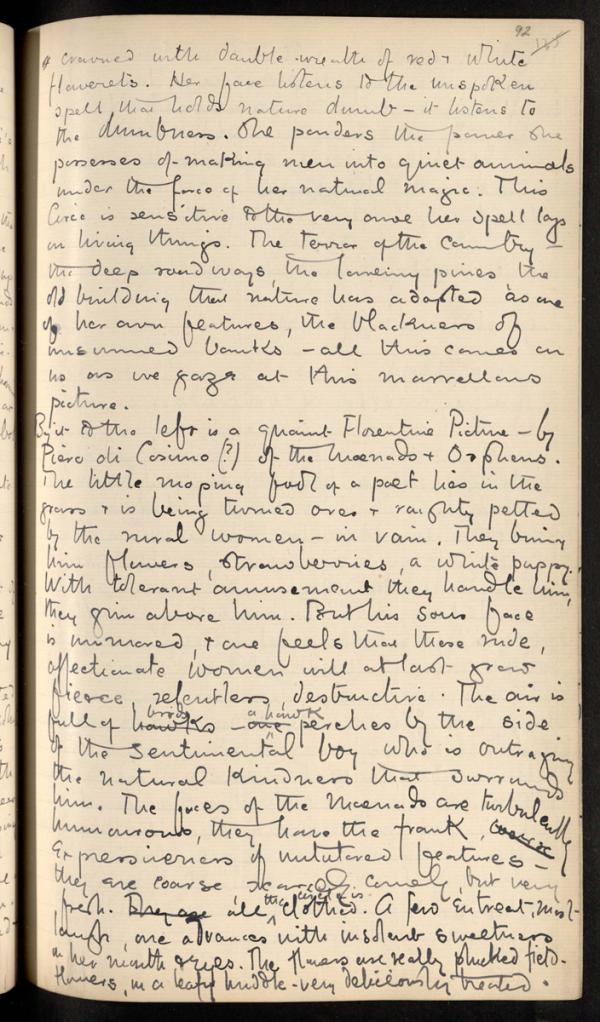 92
& crowned with double wreath of red & white
flowerets. Her face listens to the unspoken
spell that holds nature dumb – it listens to
the dumbness. She ponders the power she
possesses of making men into quiet animals
under the force of her natural magic. This
Circe is sensitive to the very awe her spell lays
on living things. The terror of the country –
the deep roadways, the towering pines the
old building that nature has adopted as one
of her own features, the blackness of
unsunned banks – all this comes on
us as we gaze at this marvellous
picture.
By it to the left is a quaint Florentine Picture – by
Piero di Cosimo (?) of the Maenads & Orpheus.
The little moping fool of a poet lies in the
grass & is being turned over & roughly petted
by the rural women – in vain. They bring
him flowers, strawberries, a white puppy.
With tolerant amusement they handle him,
they grin above him. But his sour face
is unmoved, & one feels that these rude,
affectionate women will at last grow
fierce, relentless, destructive. The air is
full of hawks birds – one a hawk perches by the side
of the sentimental boy who is outraging
the natural kindness that surrounds
him. The faces of the Maenads are turbulently
humourous, they have the frank, coarse
expressiveness of untutored features –
they are coarse, scarcely comely, but very
fresh. They are all clothed. A few entreat, most
laugh, one advances with insolent sweetness
in her mouth & eyes. The flowers are really plucked field-
flowers, in a leafy huddle – very deliciously treated.